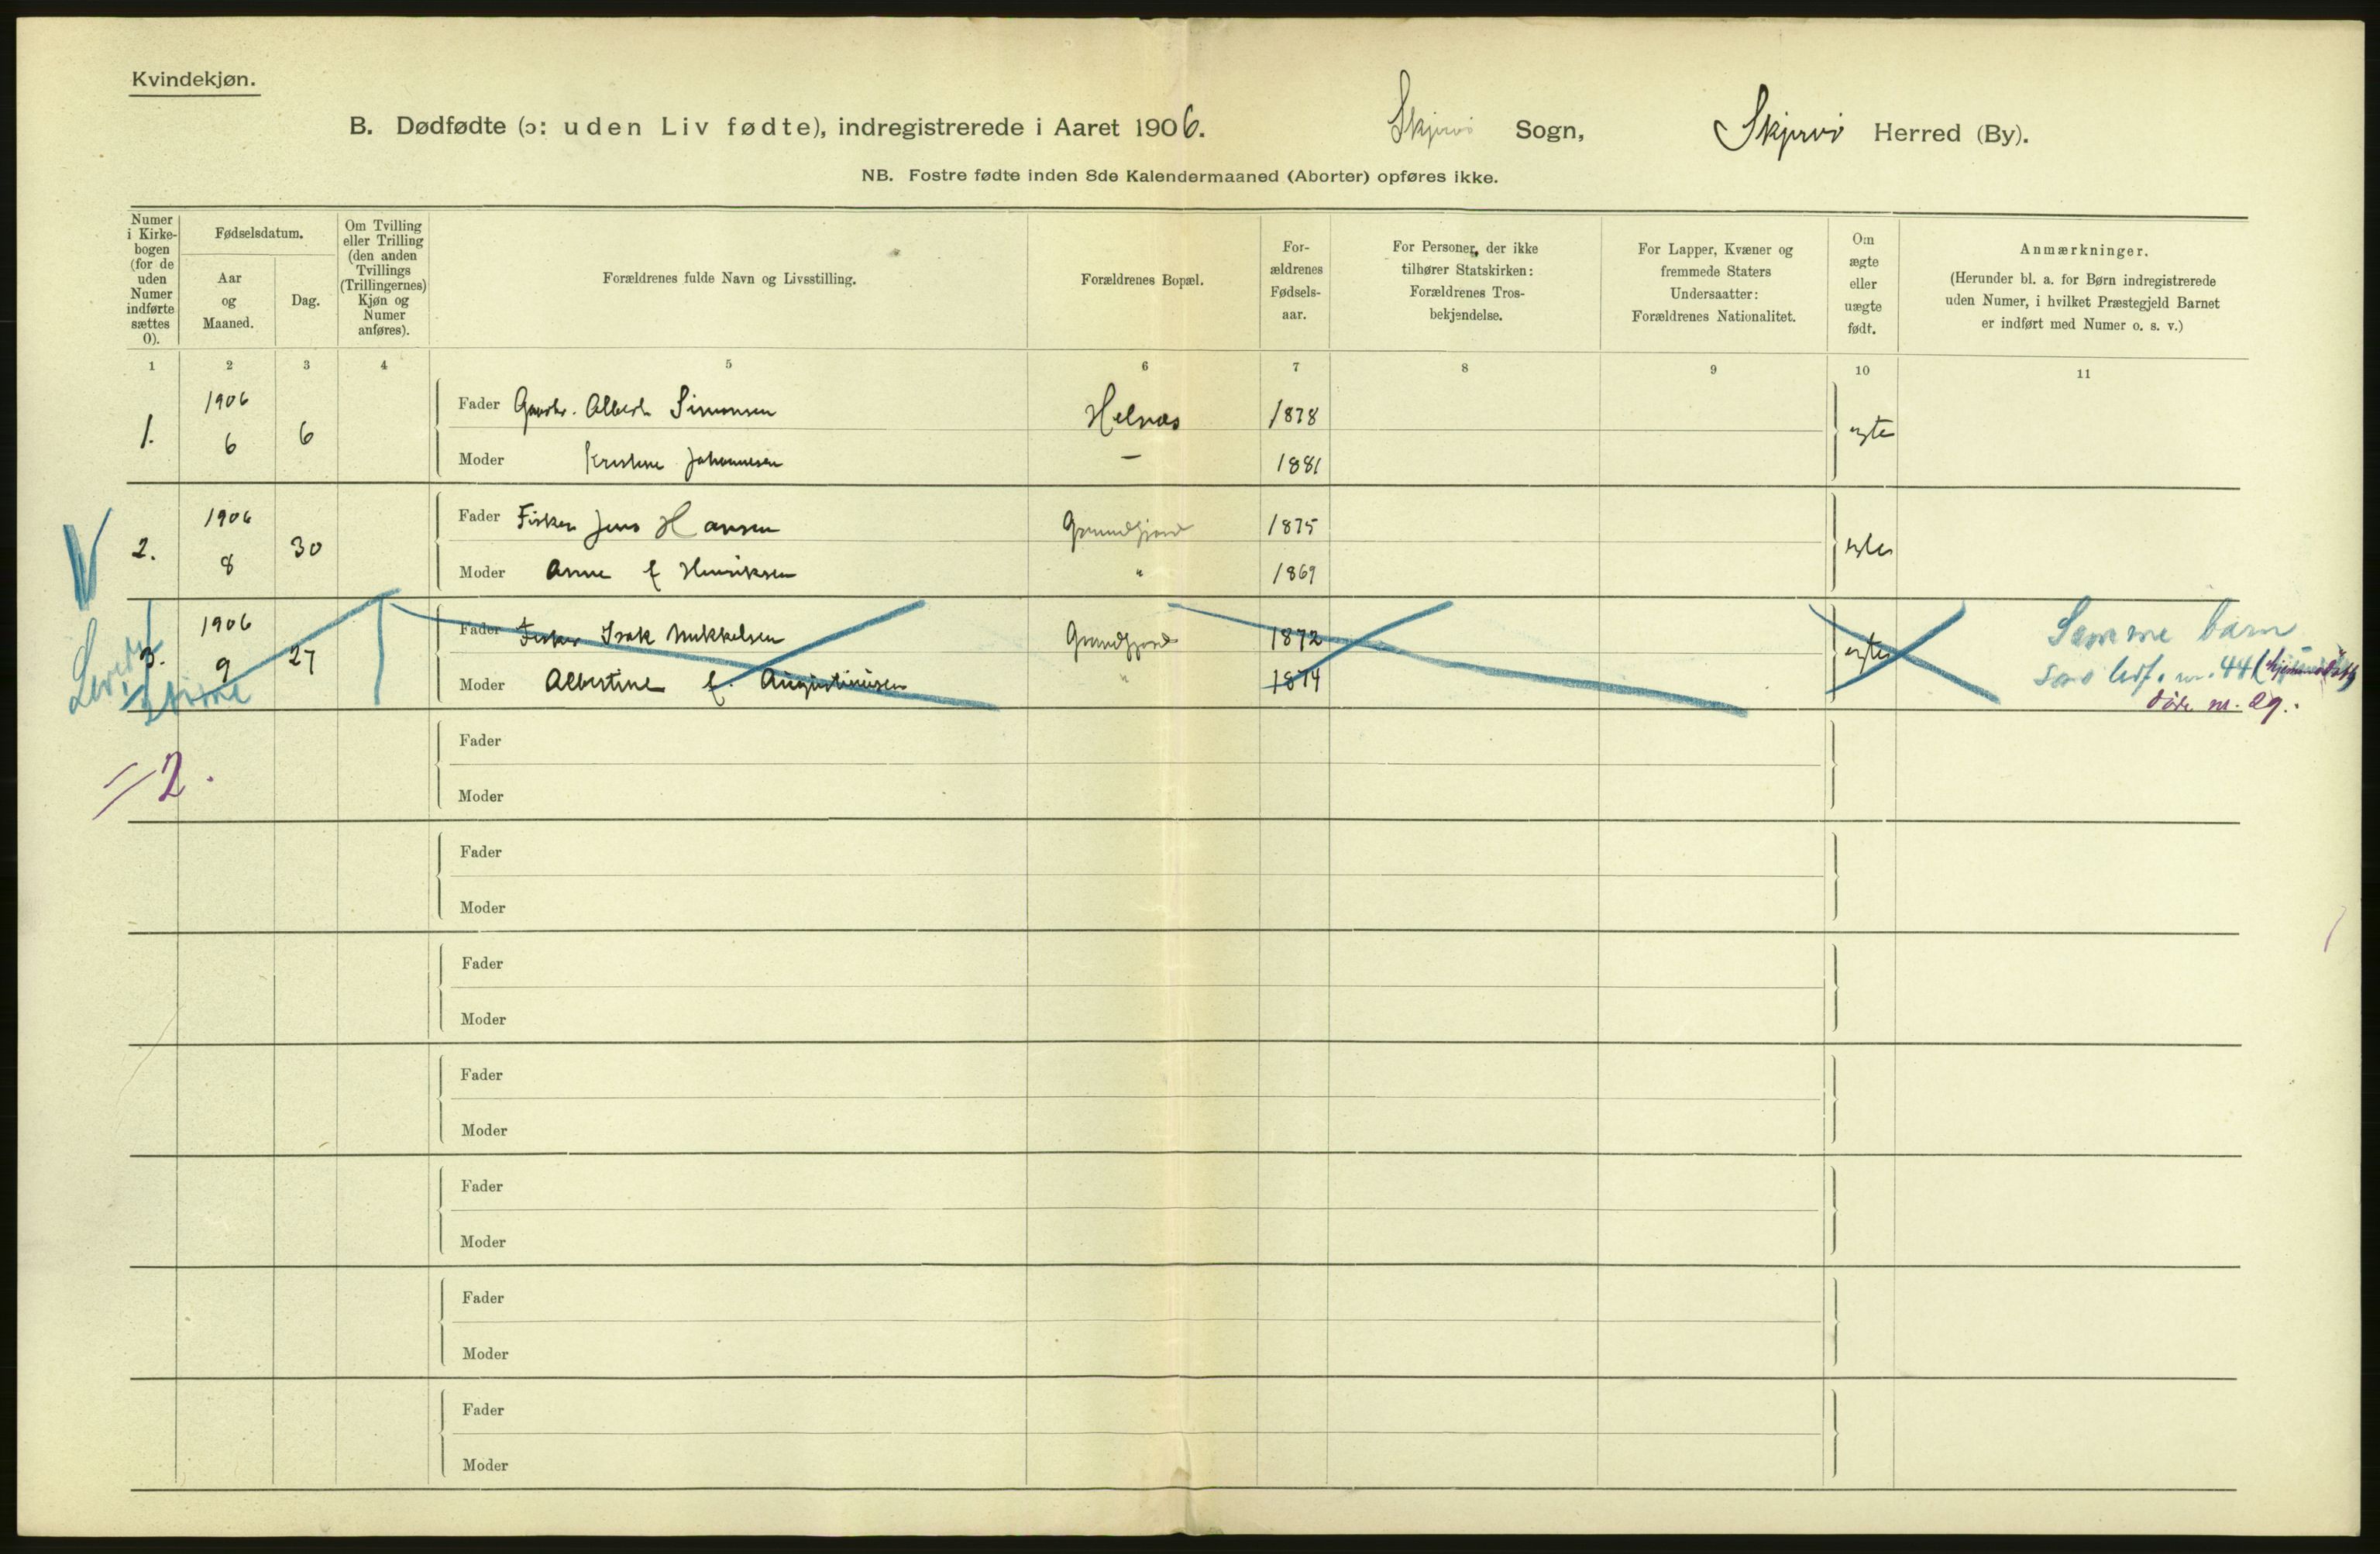 Kvindekjøn.
B. Dødfødte (ɔ: uden Liv fødte), indregistrerede i Aaret 1906. Skjervö Sogn, Skjervö Herred (By).
NB. Fostre fødte inden 8de Kalendermaaned (Aborter) opføres ikke.
Numer i Kirke-bogen (for de uden Numer indførte sættes 0).
Fødselsdatum.
Aar og Maaned.
Dag.
Om Tvilling eller Trilling (den anden Tvillings (Trillingernes) Kjøn og Numer anføres).
Forældrenes fulde Navn og Livsstilling.
Forældrenes Bopæl.
For-ældrenes Fødsels-aar.
For Personer, der ikke tilhører Statskirken: Forældrenes Tros-bekjendelse.
For Lapper, Kvæner og fremmede Staters Undersaatter: Forældrenes Nationalitet.
Om ægte eller uægte født.
Anmærkninger.
(Herunder bl. a. for Børn indregistrerede uden Numer, i hvilket Præstegjeld Barnet er indført med Numer o. s. v.)
1 2 3 4 5 6 7 8 9 10 11
1. 1906 6 6 Fader Albert Simonsen Helnæs 1878 ægte
Moder Kristine Johannesen — 1881
2. 1906 8 30 Fader Fisker Jens Hansen Grundfjord 1875 ægte
Moder Anne f Henriksen " 1869
3. 1906 9 27 Fader Fisker Isak Mikkelsen Grundfjord 1872 ægte Samme barn
Moder Albertine f. Augustinusen " 1874 som nr. 44
døde nr. 29.
Levede
= 2.
Fader
Moder
Fader
Moder
Fader
Moder
Fader
Moder
Fader
Moder
Fader
Moder
Fader
Moder